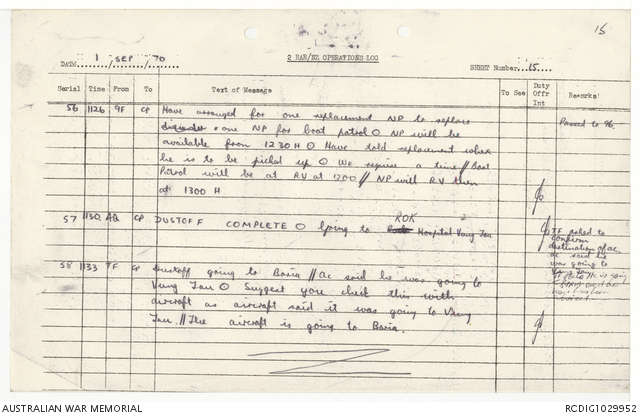 15
DATE 1 / SEP / 70
2 RAR/NZ OPERATIONS LOG
SHEET Number 15
Serial Time From To Text of Message To See Duty Offr Int Remarks
56 1126 9F CP Have arranged for one replacement NP to replace Passed to 96.
+ one NP for boat patrol O NP will be
available from 1230 H O Have told replacement where
he is to be picked up O We require a time // Boat
Patrol will be at RV at 1200 // NP will RV then
at 1300 H
57 1130 AQ CP DUSTOFF COMPLETE O Going to ROK Hospital Vung Tau
TF asked to
confirm
destination of ac.
ac said he
was going to
Vung Tau
58 1133 TF CP Dustoff going to Baria // ac said he was going to
Vung Tau O Suggest you check this with
aircraft as aircraft said it was going to Vung
Tau // The aircraft is going to Baria.
AUSTRALIAN WAR MEMORIAL
RCDIG1029952